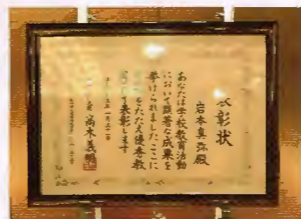 表彰状
岩本真弥殿
あなたは学校教育活動
において顕著な成果を
挙げられましたここに
をたたえ優秀教
して表彰します
高木義明